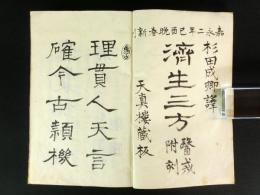 嘉永二年己酉晩春新刻
杉田成卿譯
濟生三方
醫戒
附刻
天真樓藏板
理貫人天言
確今古類機